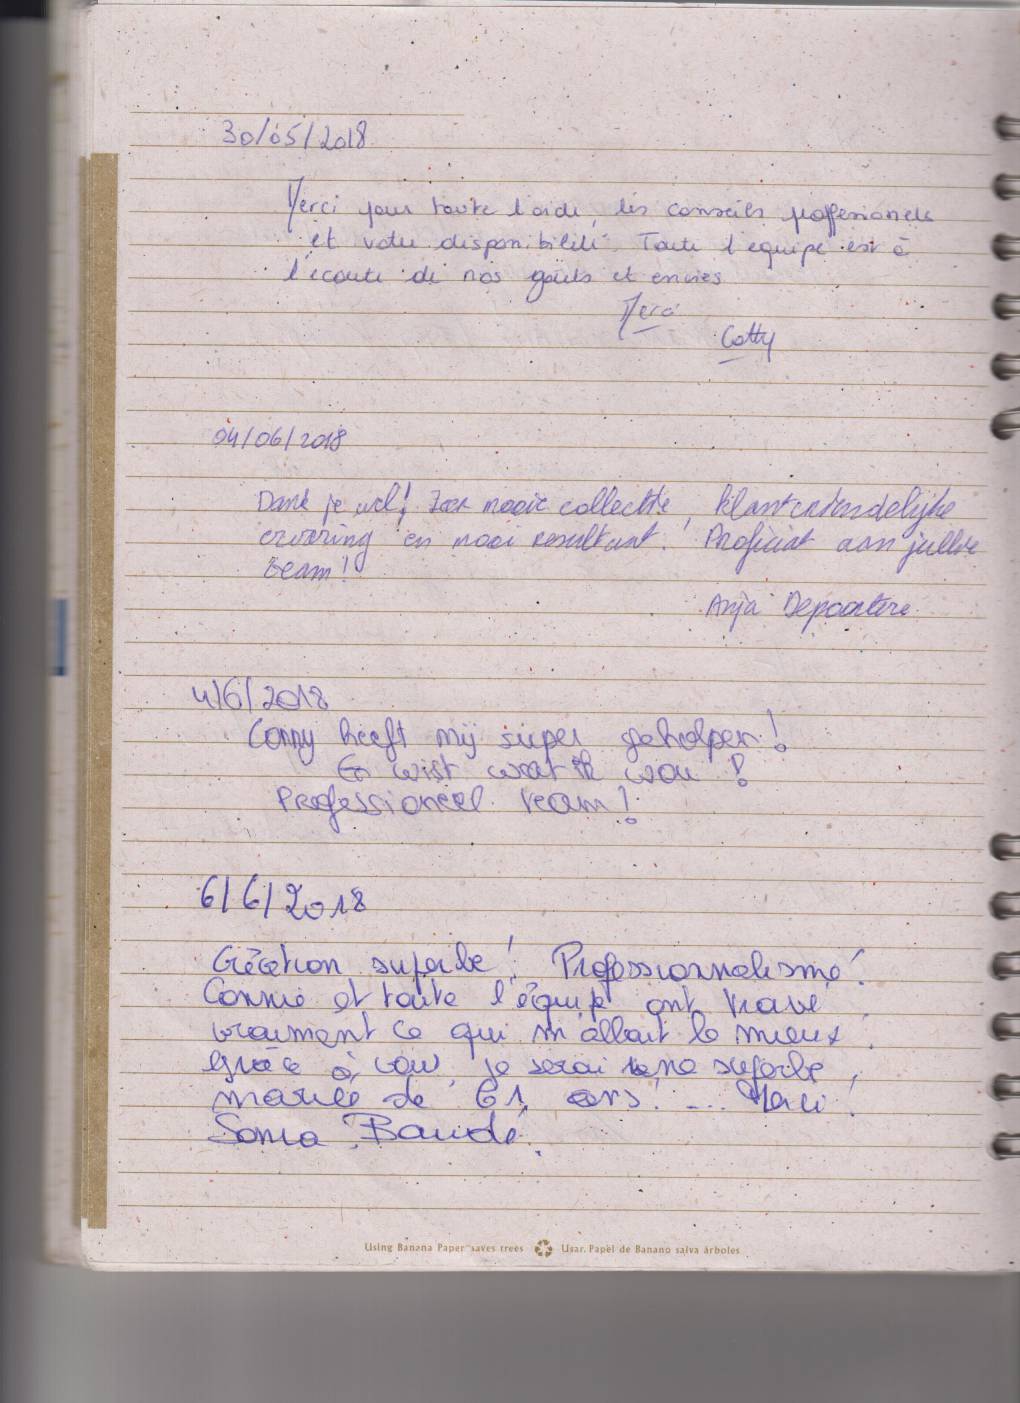 30/05/2018
Merci pour toute l'aide, les conseils professionels
et votre disponibilité. Toute l'equipe est à
l'ecoute de nos goûts et envies
Merci
Cathy
04/06/2018
Dank je wel! Zeer mooie collectie, klantvriendelijke
ervaring en mooi resultaat. Proficiat aan jullie
team!
Anja Depoortere
4/6/2018
Conny heeft mij super geholpen!
En wist wat ik wou!
Professioneel team!
6/6/2018
Création superbe! Professionnalisme!
Connie et toute l'équipe ont trouvé
vraiment ce qui m'allait le mieux.
Grâce à vous, je serai une superbe
mariée de 61 ans. ... Merci!
Sonia Baudé.
Using Banana Paper saves trees Usar Papel de Banano salva árboles